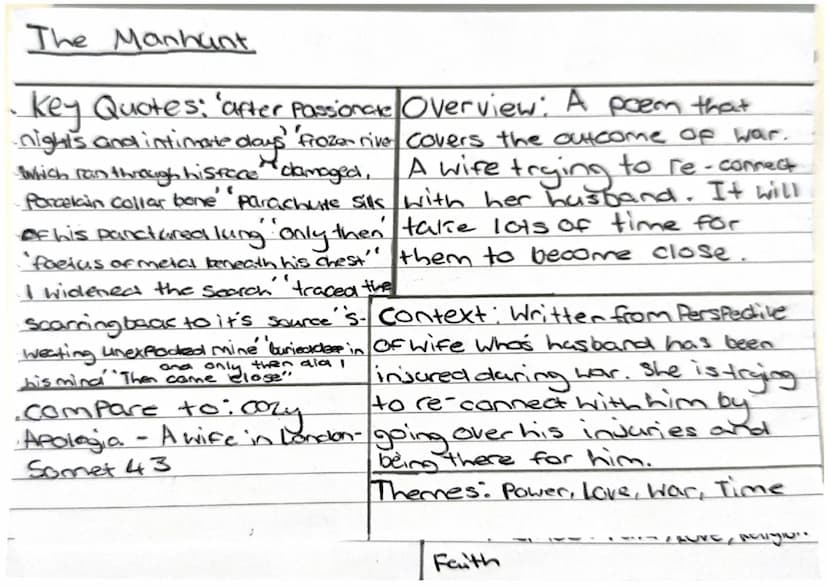 The Manhunt
Key Quotes: 'after passionate
nights and intimate days' 'frozen river
which ran through his face' 'damaged,
Porcelain collar bone' 'parachute silk
of his punctured lung' 'only then'
'foetus of metal beneath his chest'
I widened the search' 'traced the
scarring back to it's source' 's-
weating unexploded mine' 'buried deep in
his mind' 'Then and only then did I come close"
. Compare to: Cozy
Apologia - A wife in London -
Sonnet 43
Overview: A poem that
covers the outcome of war.
A wife trying to re-connect
with her husband. It will
take lots of time for
them to become close.
Context: Written from Perspective
of wife who's husband has been
injured during war. She is trying
to re-connect with him by
going over his injuries and
being there for him.
Themes: Power, Love, War, Time
Faith